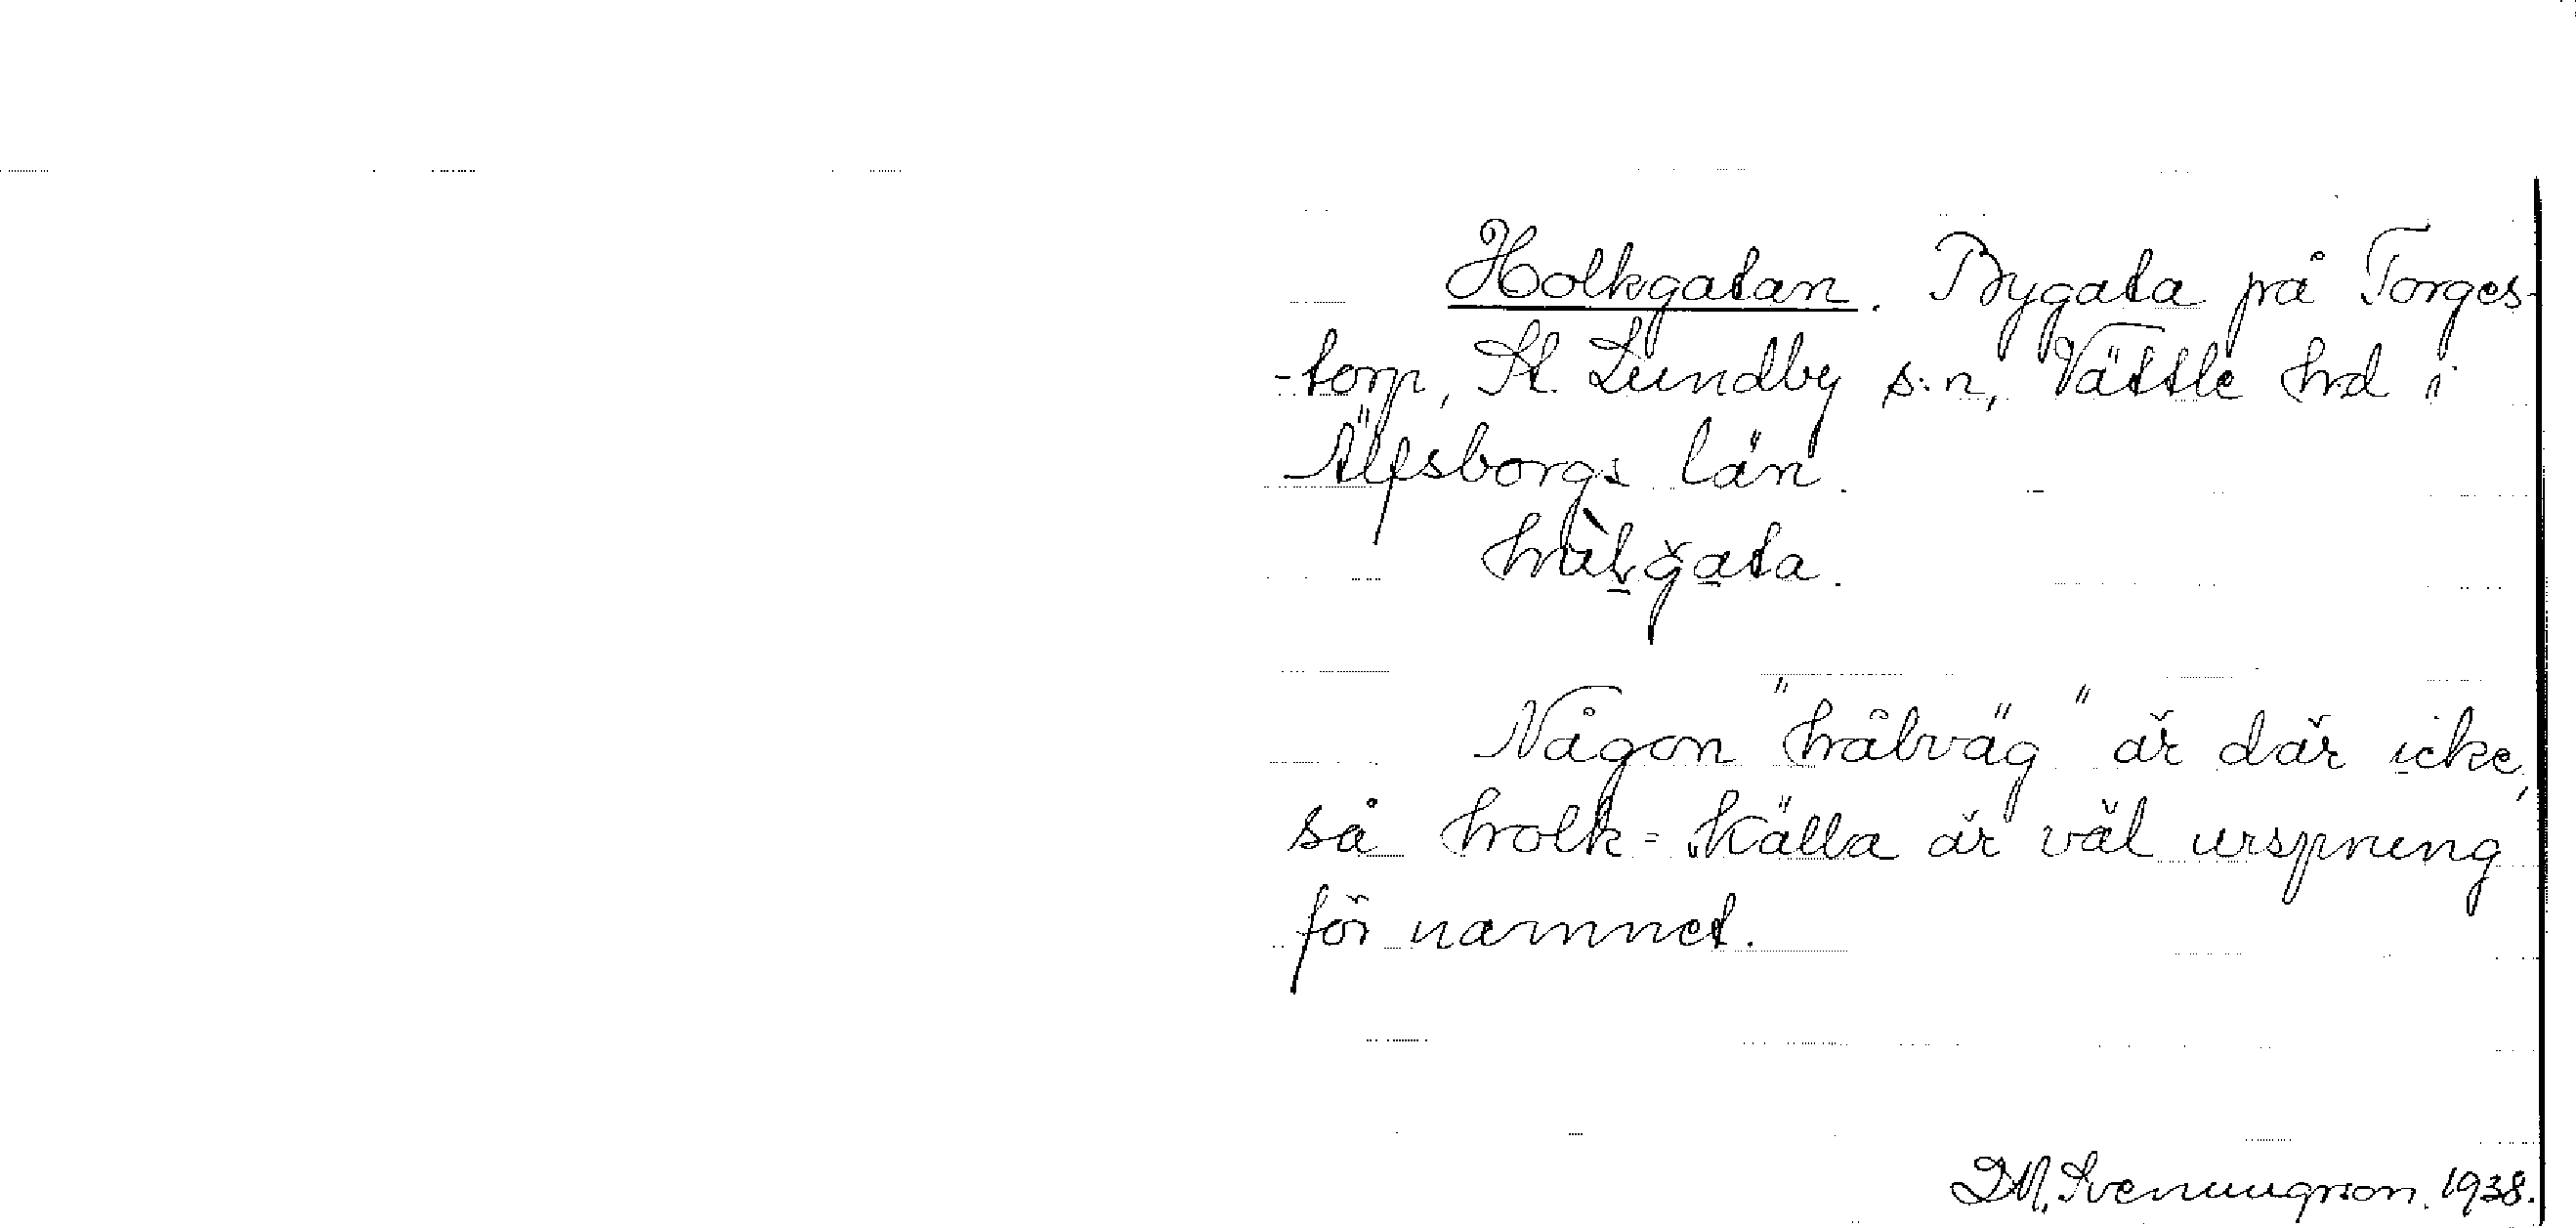 Holkgatan. Bygata på Torges-
-torp, St. Lundby s:n, Vättle hd i
Älfsborgs län.
Någon "hålväg" är där icke,
så holk = källa är väl ursprung
för namnet.
D.M. Svenungsson. 1938.